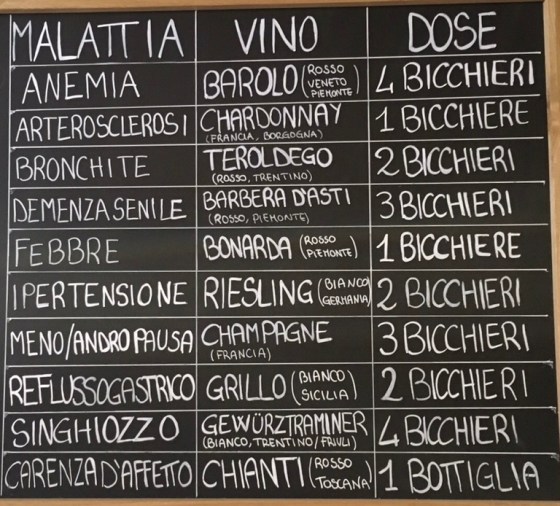 MALATTIA VINO DOSE
ANEMIA BAROLO (ROSSO VENETO PIEMONTE) 4 BICCHIERI
ARTEROSCLEROSI CHARDONNAY (FRANCIA, BORGOGNA) 1 BICCHIERE
BRONCHITE TEROLDEGO (ROSSO, TRENTINO) 2 BICCHIERI
DEMENZA SENILE BARBERA D'ASTI (ROSSO, PIEMONTE) 3 BICCHIERI
FEBBRE BONARDA (ROSSO PIEMONTE) 1 BICCHIERE
IPERTENSIONE RIESLING (BIANCO GERMANIA) 2 BICCHIERI
MENO/ANDROPAUSA CHAMPAGNE (FRANCIA) 3 BICCHIERI
REFLUSSO GASTRICO GRILLO (BIANCO SICILIA) 2 BICCHIERI
SINGHIOZZO GEWÜRZTRAMINER (BIANCO, TRENTINO/FRIULI) 4 BICCHIERI
CARENZA D'AFFETTO CHIANTI (ROSSO TOSCANA) 1 BOTTIGLIA